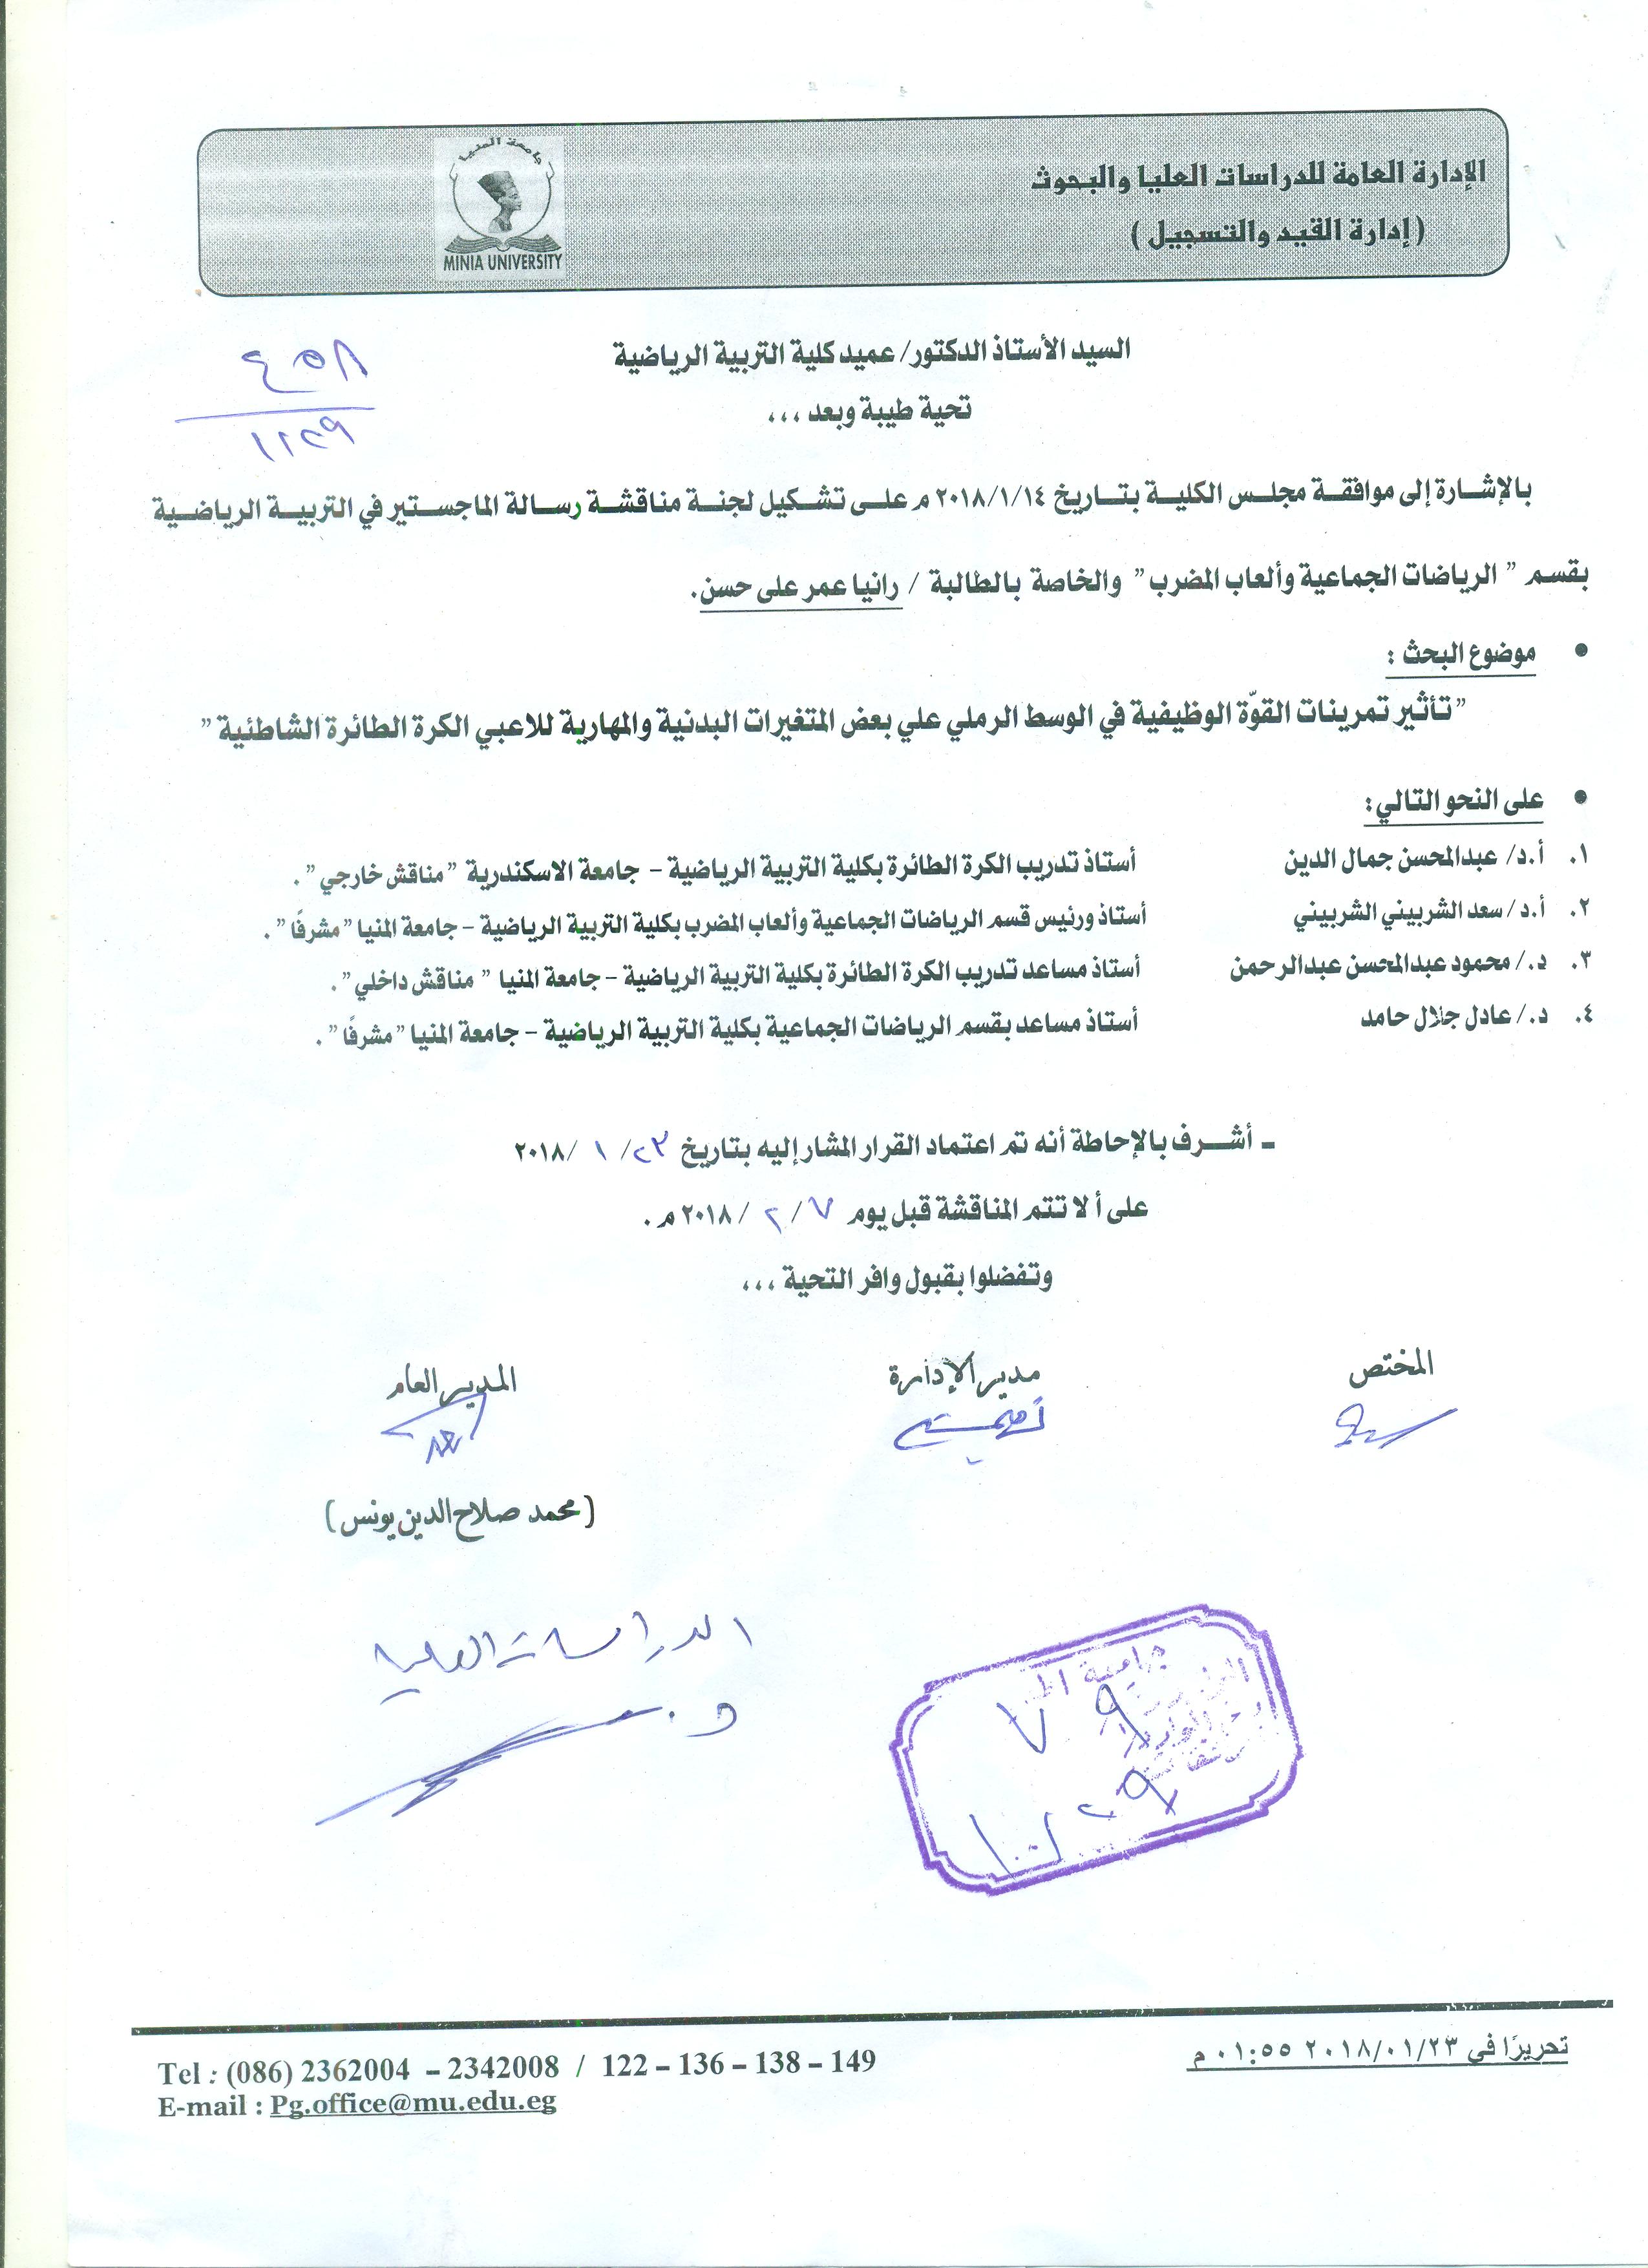 الإدارة العامة للدراسات العليا والبحوث
( إدارة القيد والتسجيل )
جامعة المنيا
MINIA UNIVERSITY
السيد الأستاذ الدكتور/ عميد كلية التربية الرياضية
تحية طيبة وبعد ...
٤٥٨
١٢٢٩
بالإشارة إلى موافقة مجلس الكلية بتاريخ ٢٠١٨/١/١٤ م على تشكيل لجنة مناقشة رسالة الماجستير في التربية الرياضية
بقسم " الرياضات الجماعية وألعاب المضرب" والخاصة بالطالبة / رانيا عمر على حسن.
• موضوع البحث :
"تأثير تمرينات القوّة الوظيفية في الوسط الرملي علي بعض المتغيرات البدنية والمهارية للاعبي الكرة الطائرة الشاطئية "
• على النحو التالي:
١. أ.د/ عبدالمحسن جمال الدين أستاذ تدريب الكرة الطائرة بكلية التربية الرياضية – جامعة الاسكندرية "مناقش خارجي" .
٢. أ.د/ سعد الشربيني الشربيني أستاذ ورئيس قسم الرياضات الجماعية وألعاب المضرب بكلية التربية الرياضية – جامعة المنيا "مشرفًا" .
٣. د./ محمود عبدالمحسن عبدالرحمن أستاذ مساعد تدريب الكرة الطائرة بكلية التربية الرياضية – جامعة المنيا " مناقش داخلي" .
٤. د./ عادل جلال حامد أستاذ مساعد بقسم الرياضات الجماعية بكلية التربية الرياضية – جامعة المنيا "مشرفًا" .
ـ أشرف بالإحاطة أنه تم اعتماد القرار المشار إليه بتاريخ ٢٣/ ١ /٢٠١٨
على ألا تتم المناقشة قبل يوم ٧/ ٢ /٢٠١٨ م .
وتفضلوا بقبول وافر التحية ...
المختص مدير الإدارة المدير العام
(محمد صلاح الدين يونس)
الدراسات العليا
جامعة
٧٩
تحريرًا في ٢٠١٨/٠١/٢٣ ٠١:٥٥ م
Tel : (086) 2362004 – 2342008 / 122 – 136 – 138 – 149
E-mail : Pg.office@mu.edu.eg